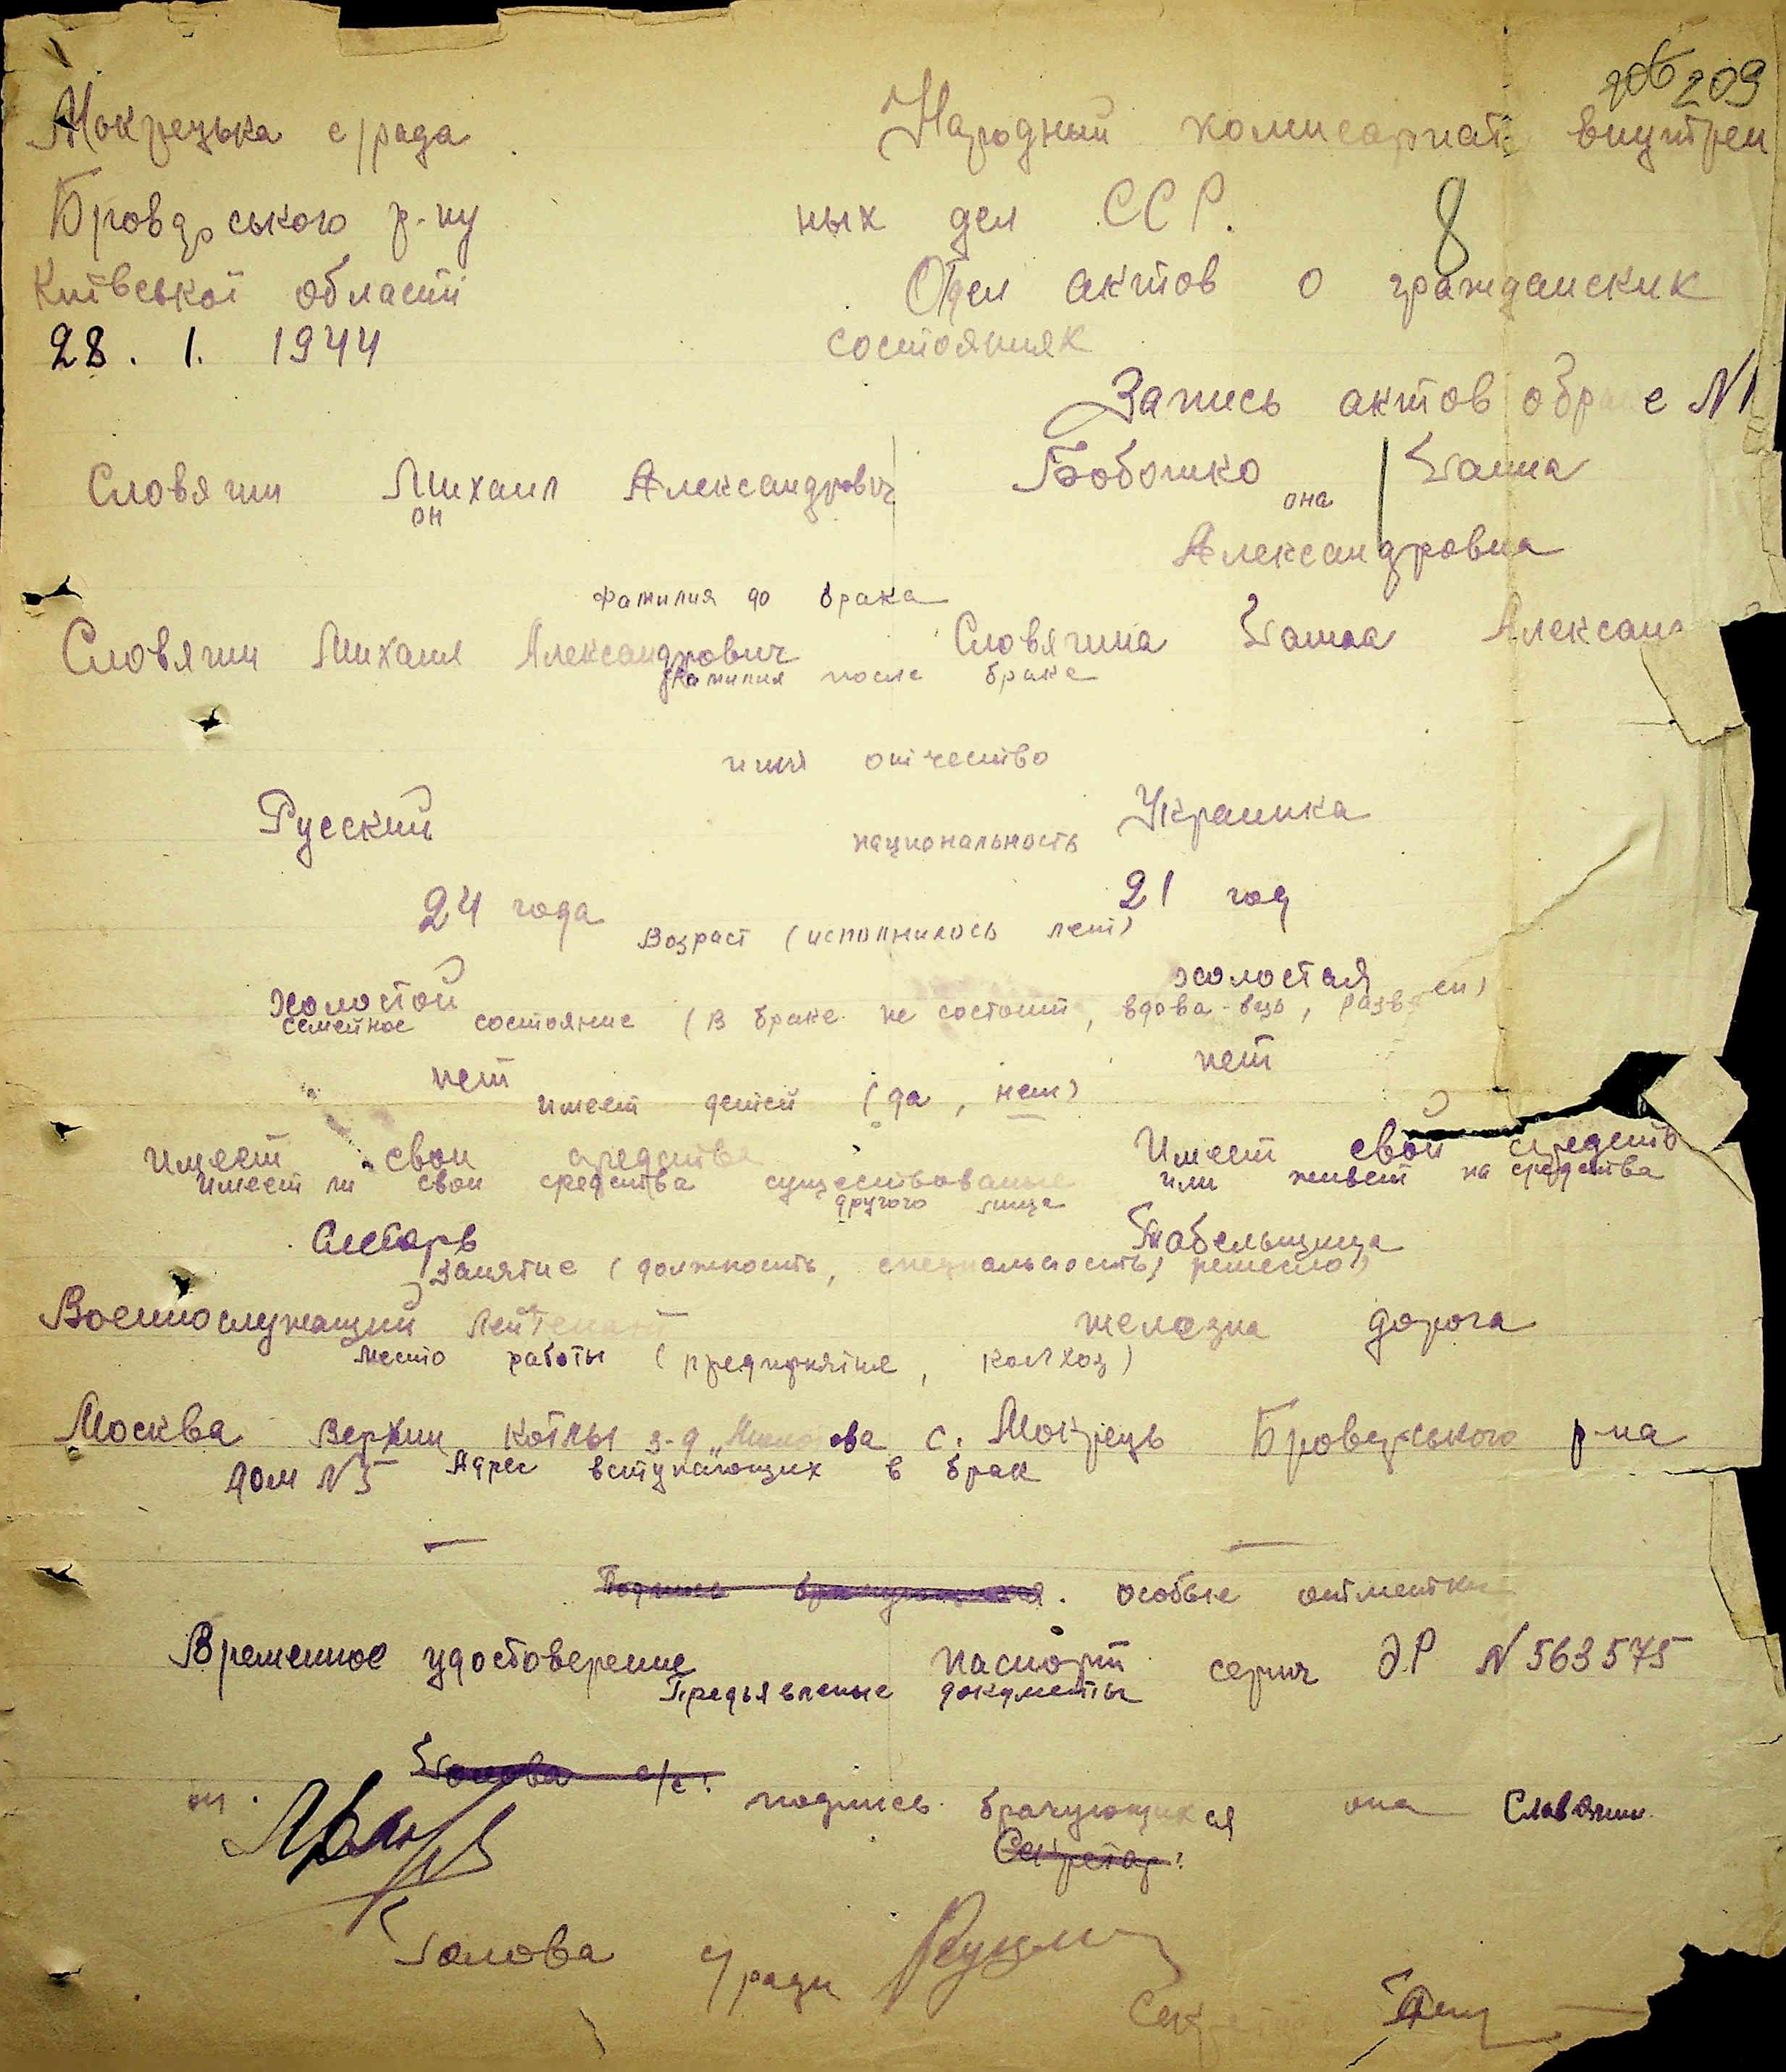 206 209
Мокрецька с/рада
Народный комисариат внутрен
Бровдрського р-ну
ных дел ССР.
8
Київської області
Отдел актов о гражданских
28. 1. 1944
состояниях
Запись актов о браке N1
Словягин Михаил Александрович
Бобошко Ганна
он
она
Александровна
Фамилия до брака
Словягин Михаил Александрович Словягина Ганна Алексан
Фамилия после браке
имя отчество
Русский
Украинка
национальность
24 года
21 год
Возраст (исполнилось лет)
холостой
холостая
семейное состояние (в браке не состоит, вдова-вец,
нет
нет
имеет детей (да, нет)
Имеет свои средства
Имеет свои средств
Имеет ли свои средства существование или живет на средства
другого лица
Слесарь
Табельщица
Занятие (должность, специальность, ремесло)
Военнослужащий Лейтенант
железна дорога
место работы (предприятие, колхоз)
Москва Верхии Котлы з-д с. Мокрець Бровдрського р-на
дом N 5 Адрес вступающих в брак
— —
Подпись брачующихся. особые отметки
Временное удостоверение
паспорт серич ЭР N 563575
Предъявленые документы
Голова с/с:
он.
подпись брачующихся она Славягин.
Секретар:
Голова с/ради
Секретар